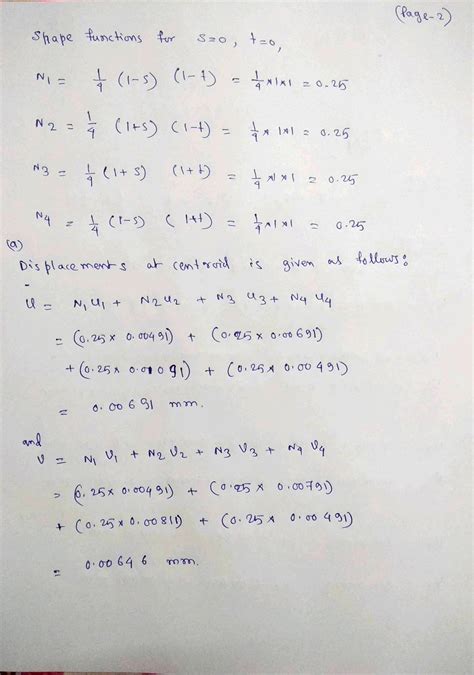 (Page-2)
Shape functions for s=0, t=0,
N1 = 1/4 (1-s) (1-t) = 1/4 x1x1 = 0.25
N2 = 1/4 (1+s) (1-t) = 1/4 x 1x1 = 0.25
N3 = 1/4 (1+s) (1+t) = 1/4 x1x1 = 0.25
N4 = 1/4 (1-s) (1+t) = 1/4 x1x1 = 0.25
(a)
Displacements at centroid is given as follows:
u = N1 u1 + N2 u2 + N3 u3 + N4 u4
= (0.25 x 0.00491) + (0.25 x 0.00691)
+ (0.25 x 0.01091) + (0.25 x 0.00491)
= 0.00691 mm.
and
v = N1 V1 + N2 V2 + N3 V3 + N4 V4
= (0.25 x 0.00491) + (0.25 x 0.00791)
+ (0.25 x 0.00811) + (0.25 x 0.00491)
= 0.00646 mm.